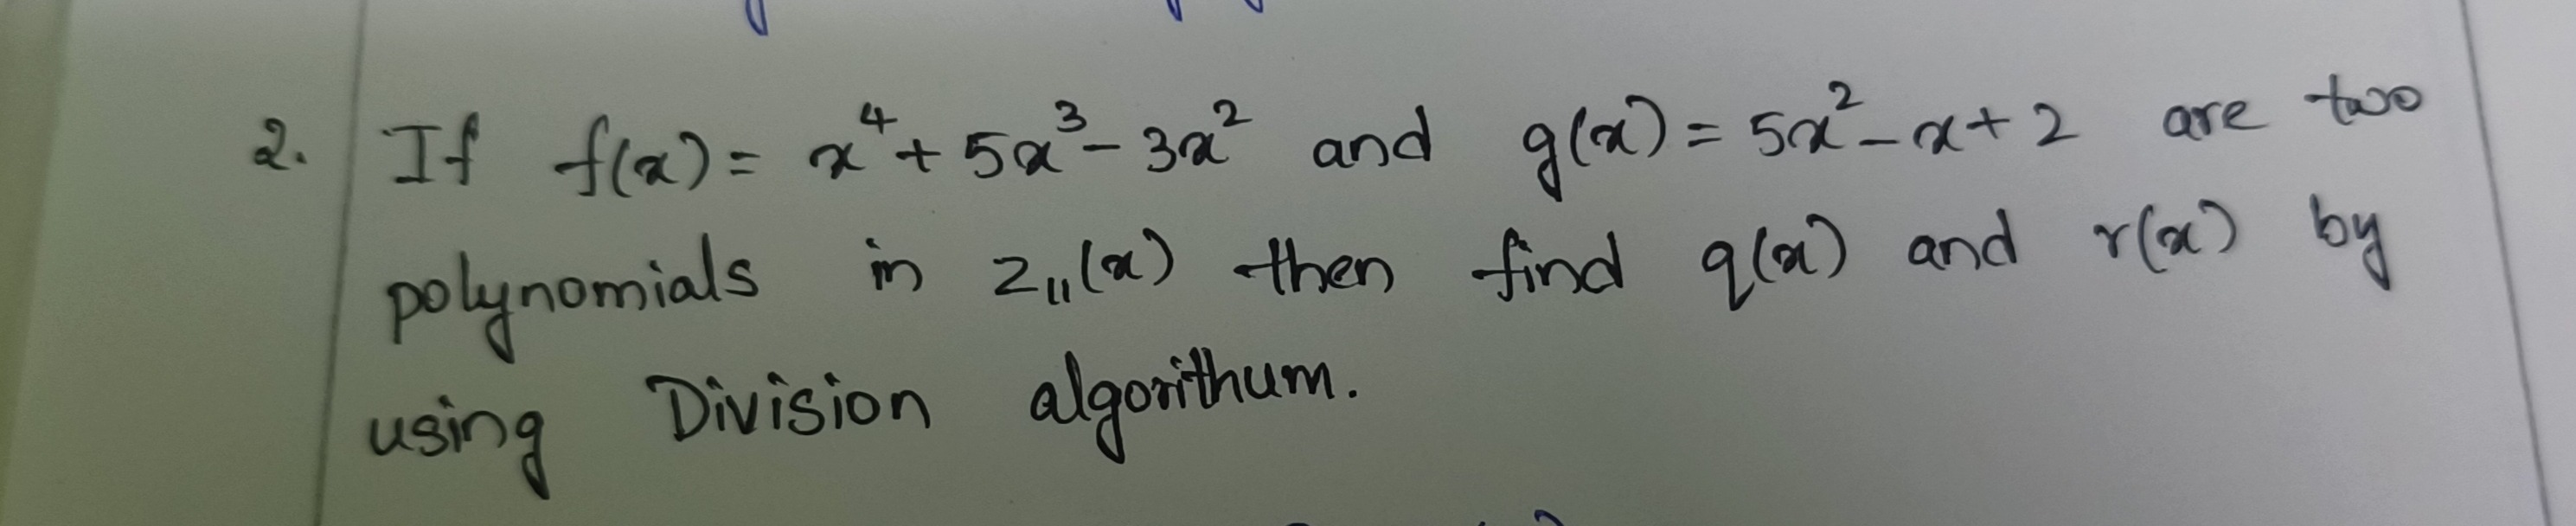 2. If f(x) = x⁴ + 5x³ - 3x² and g(x) = 5x² - x + 2 are two
polynomials in z₁₁(x) then find q(x) and r(x) by
using Division algorithum.